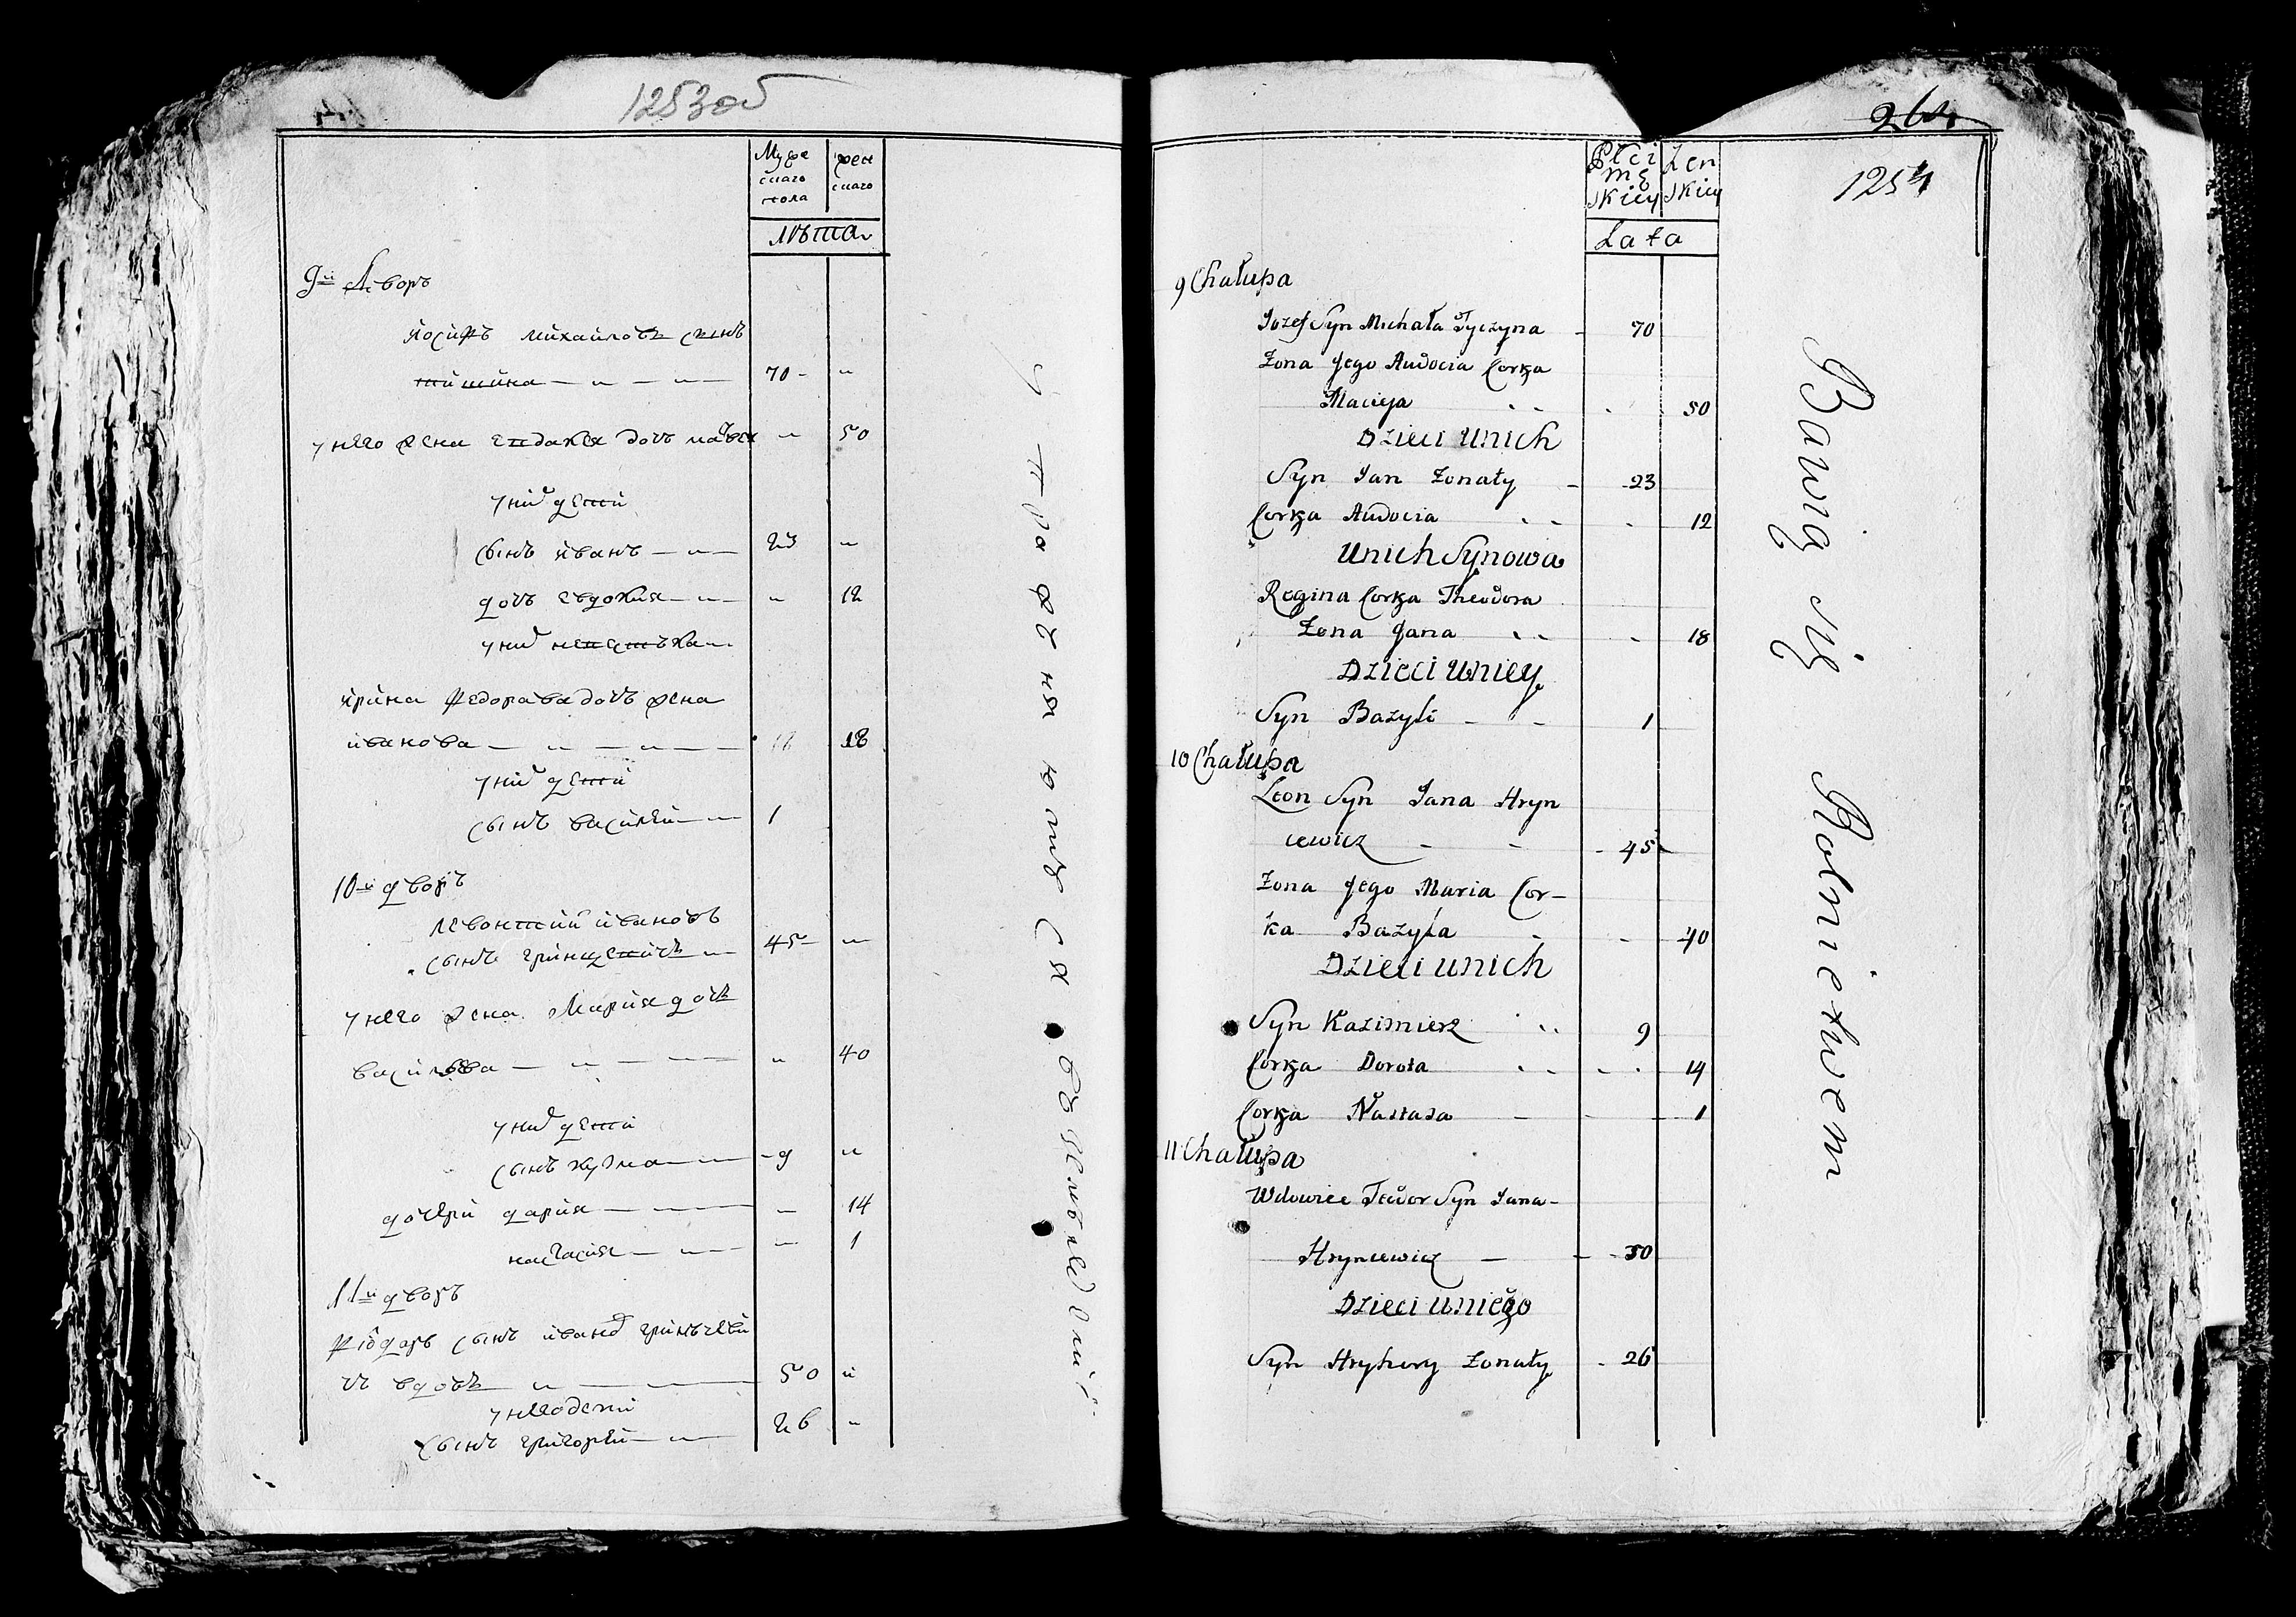 1253об
Муже
скаго
пола
жен
скаго
лѣта
9й Дворъ
йосифъ михайловъ сынъ
тишина 70 "
у него жена евдакея дочь " 50
у них дети
сынъ иванъ 23 "
дочь евдокия " 12
у них невестъка
ирина федорава дочь жена
иванова 18
у них дети
сынъ василей 1
10й дворъ
левонтий ивановъ
сынъ 45 "
у него жена Мария дочь
васильева " 40
у них дети
сынъ кузма 9 "
дочери дария " 14
настасия " 1
11й дворъ
фіодоръ сынъ ивана
вдовъ 50 "
у него дети
сынъ григорей 26 "
упражняются въ земледелии
264
1254
Płci
mę
skiey
Żen
skiey
Lata
9 Chałupa
Jozef Syn Michała Tyczyna 70
Zona Jego Audocia Corka
Macieja 50
Dzieci u nich
Syn Jan Zonaty 23
Corka Audocia 12
U nich Synowa
Regina Corka Theodora
Zona Jana 18
Dzieci u niey
Syn Bazyli 1
10 Chałupa
Leon Syn Jana Hryn
cewicz 45
Zona Jego Maria Cor-
ka Bazyla 40
Dzieci u nich
Syn Kazimierz 9
Corka Dorota 14
Corka Nastasa 1
11 Chałupa
Wdowiec Teodor Syn Jana
Hryncewicz 50
Dzieci u niego
Syn Hryhory Zonaty 26
Bawią się Rolnictwem